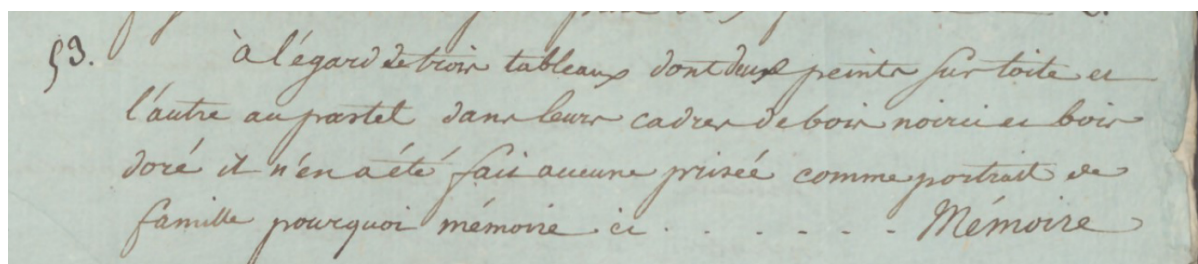 53. à l'égard de trois tableaux dont deux peints sur toile et
l'autre au pastel dans leurs cadres de bois noirci et bois
doré il n'en a été fait aucune prisée comme portrait de
famille pourquoi mémoire ci . . . . . . Mémoire